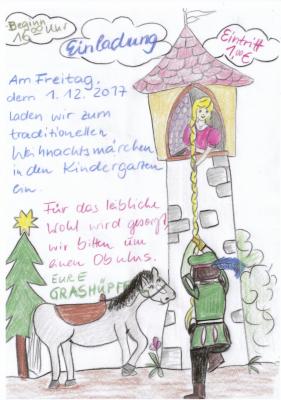 Beginn
16⁰⁰ Uhr
Einladung
Eintritt
1,00 €
Am Freitag,
dem 1.12.2017
laden wir zum
traditionellen
Weihnachtsmärchen
in den Kindergarten
ein.
Für das leibliche
Wohl wird gesorgt
wir bitten um
einen Obulus.
EURE
GRASHÜPFER